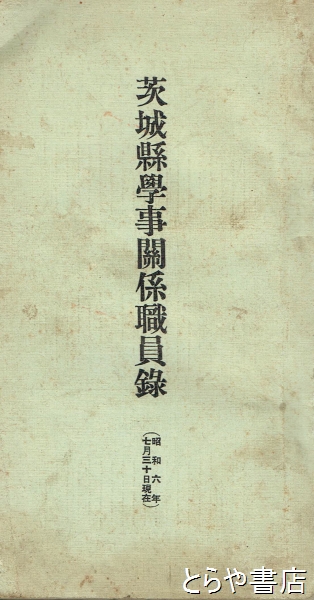 茨城縣學事關係職員錄
(昭和六年
七月三十日現在)
とらや書店